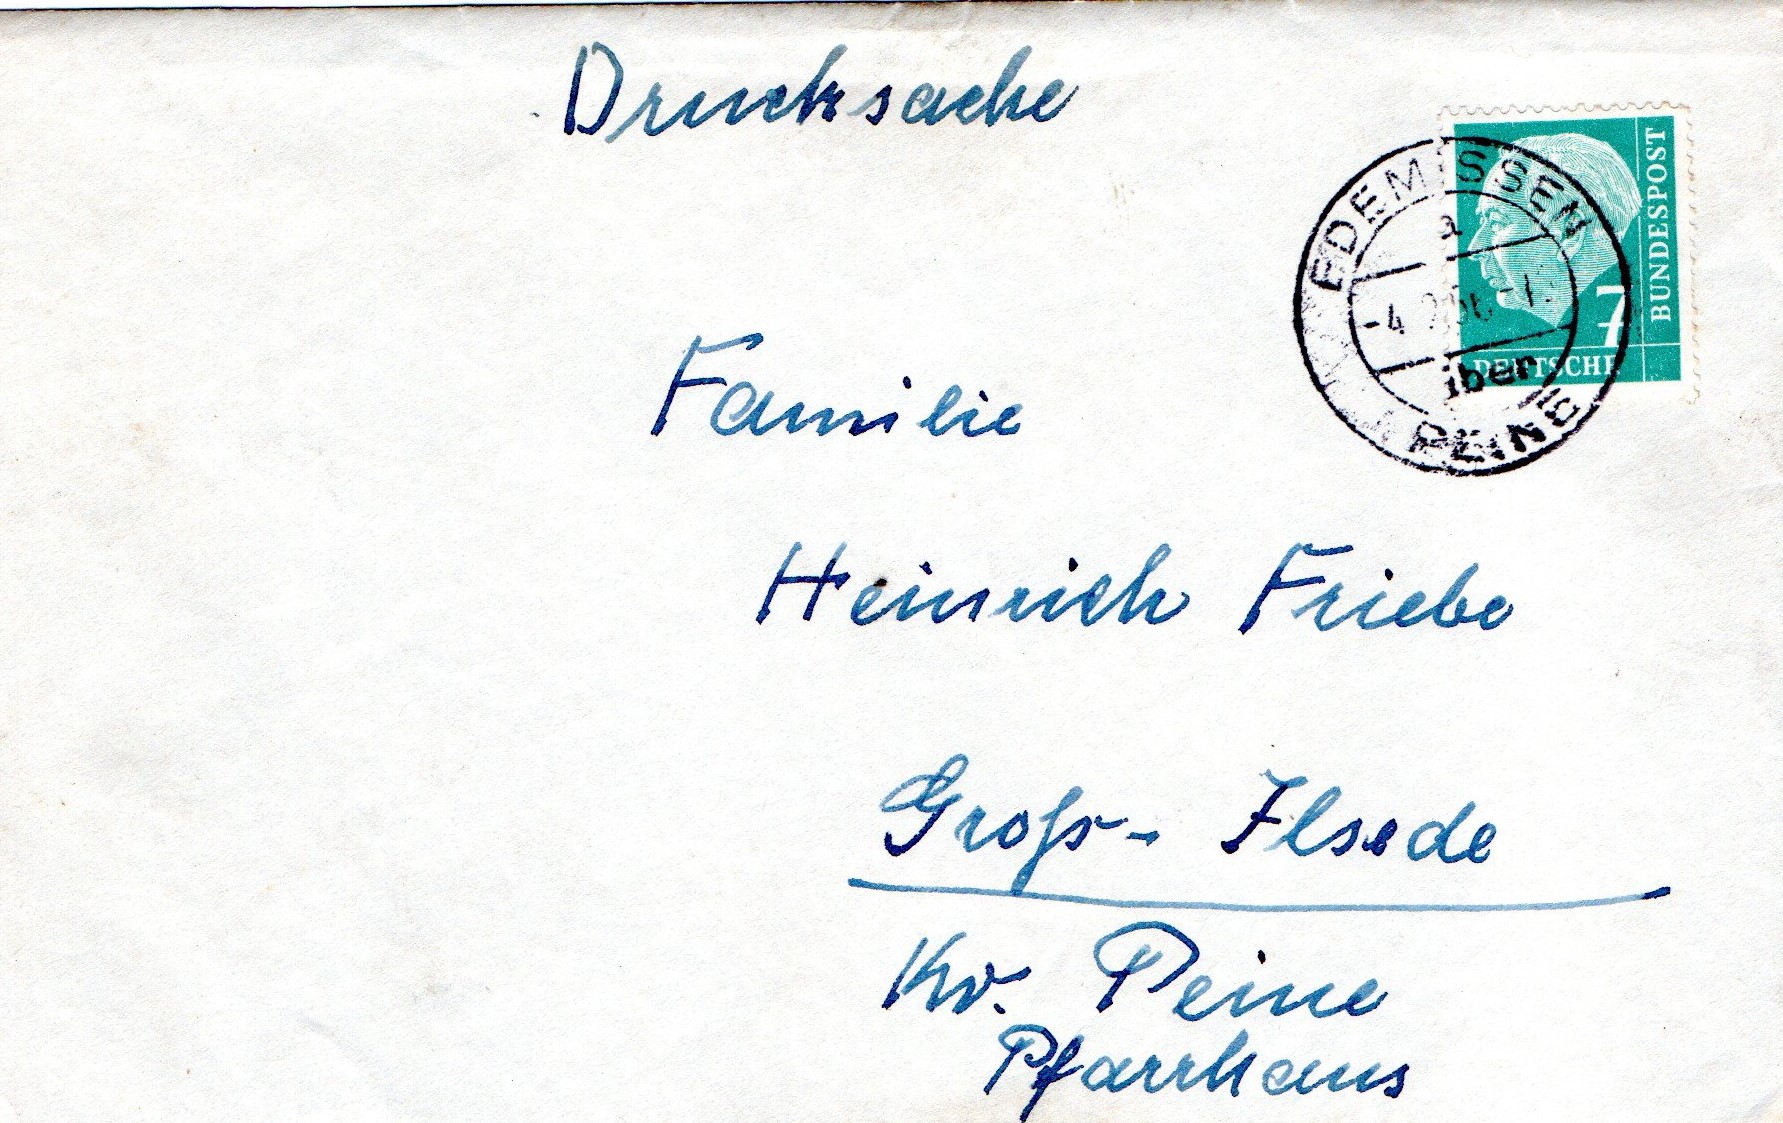 Drucksache
BUNDESPOST
7
DEUTSCHE
EDEMISSEN
a
-4
über
PEINE
Familie
Heinrich Friebe
Groß- Ilsede
Kr. Peine
Pfarrhaus